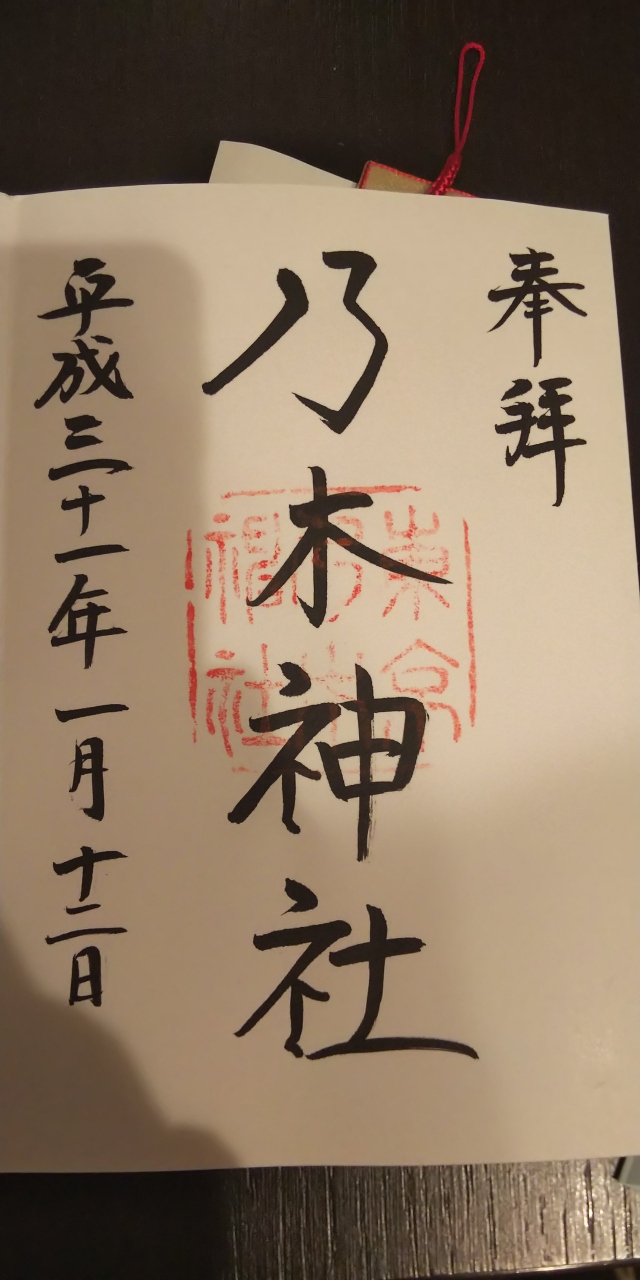 奉拝
乃木神社
東京乃木神社
平成三十一年一月十二日